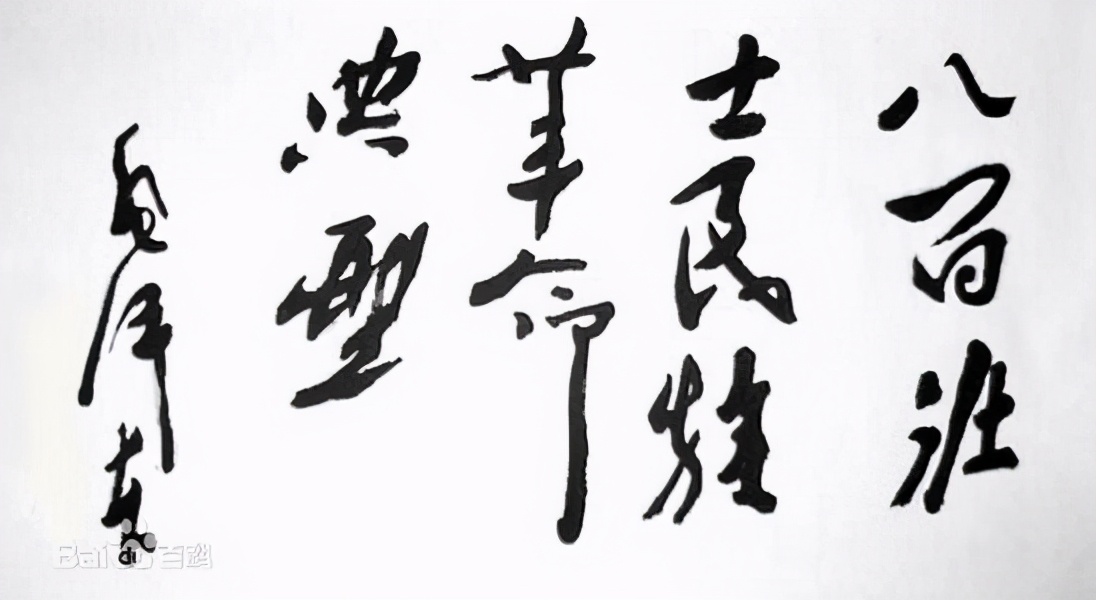 八百壮
士民族
革命
典型
毛泽东
Baidu百科